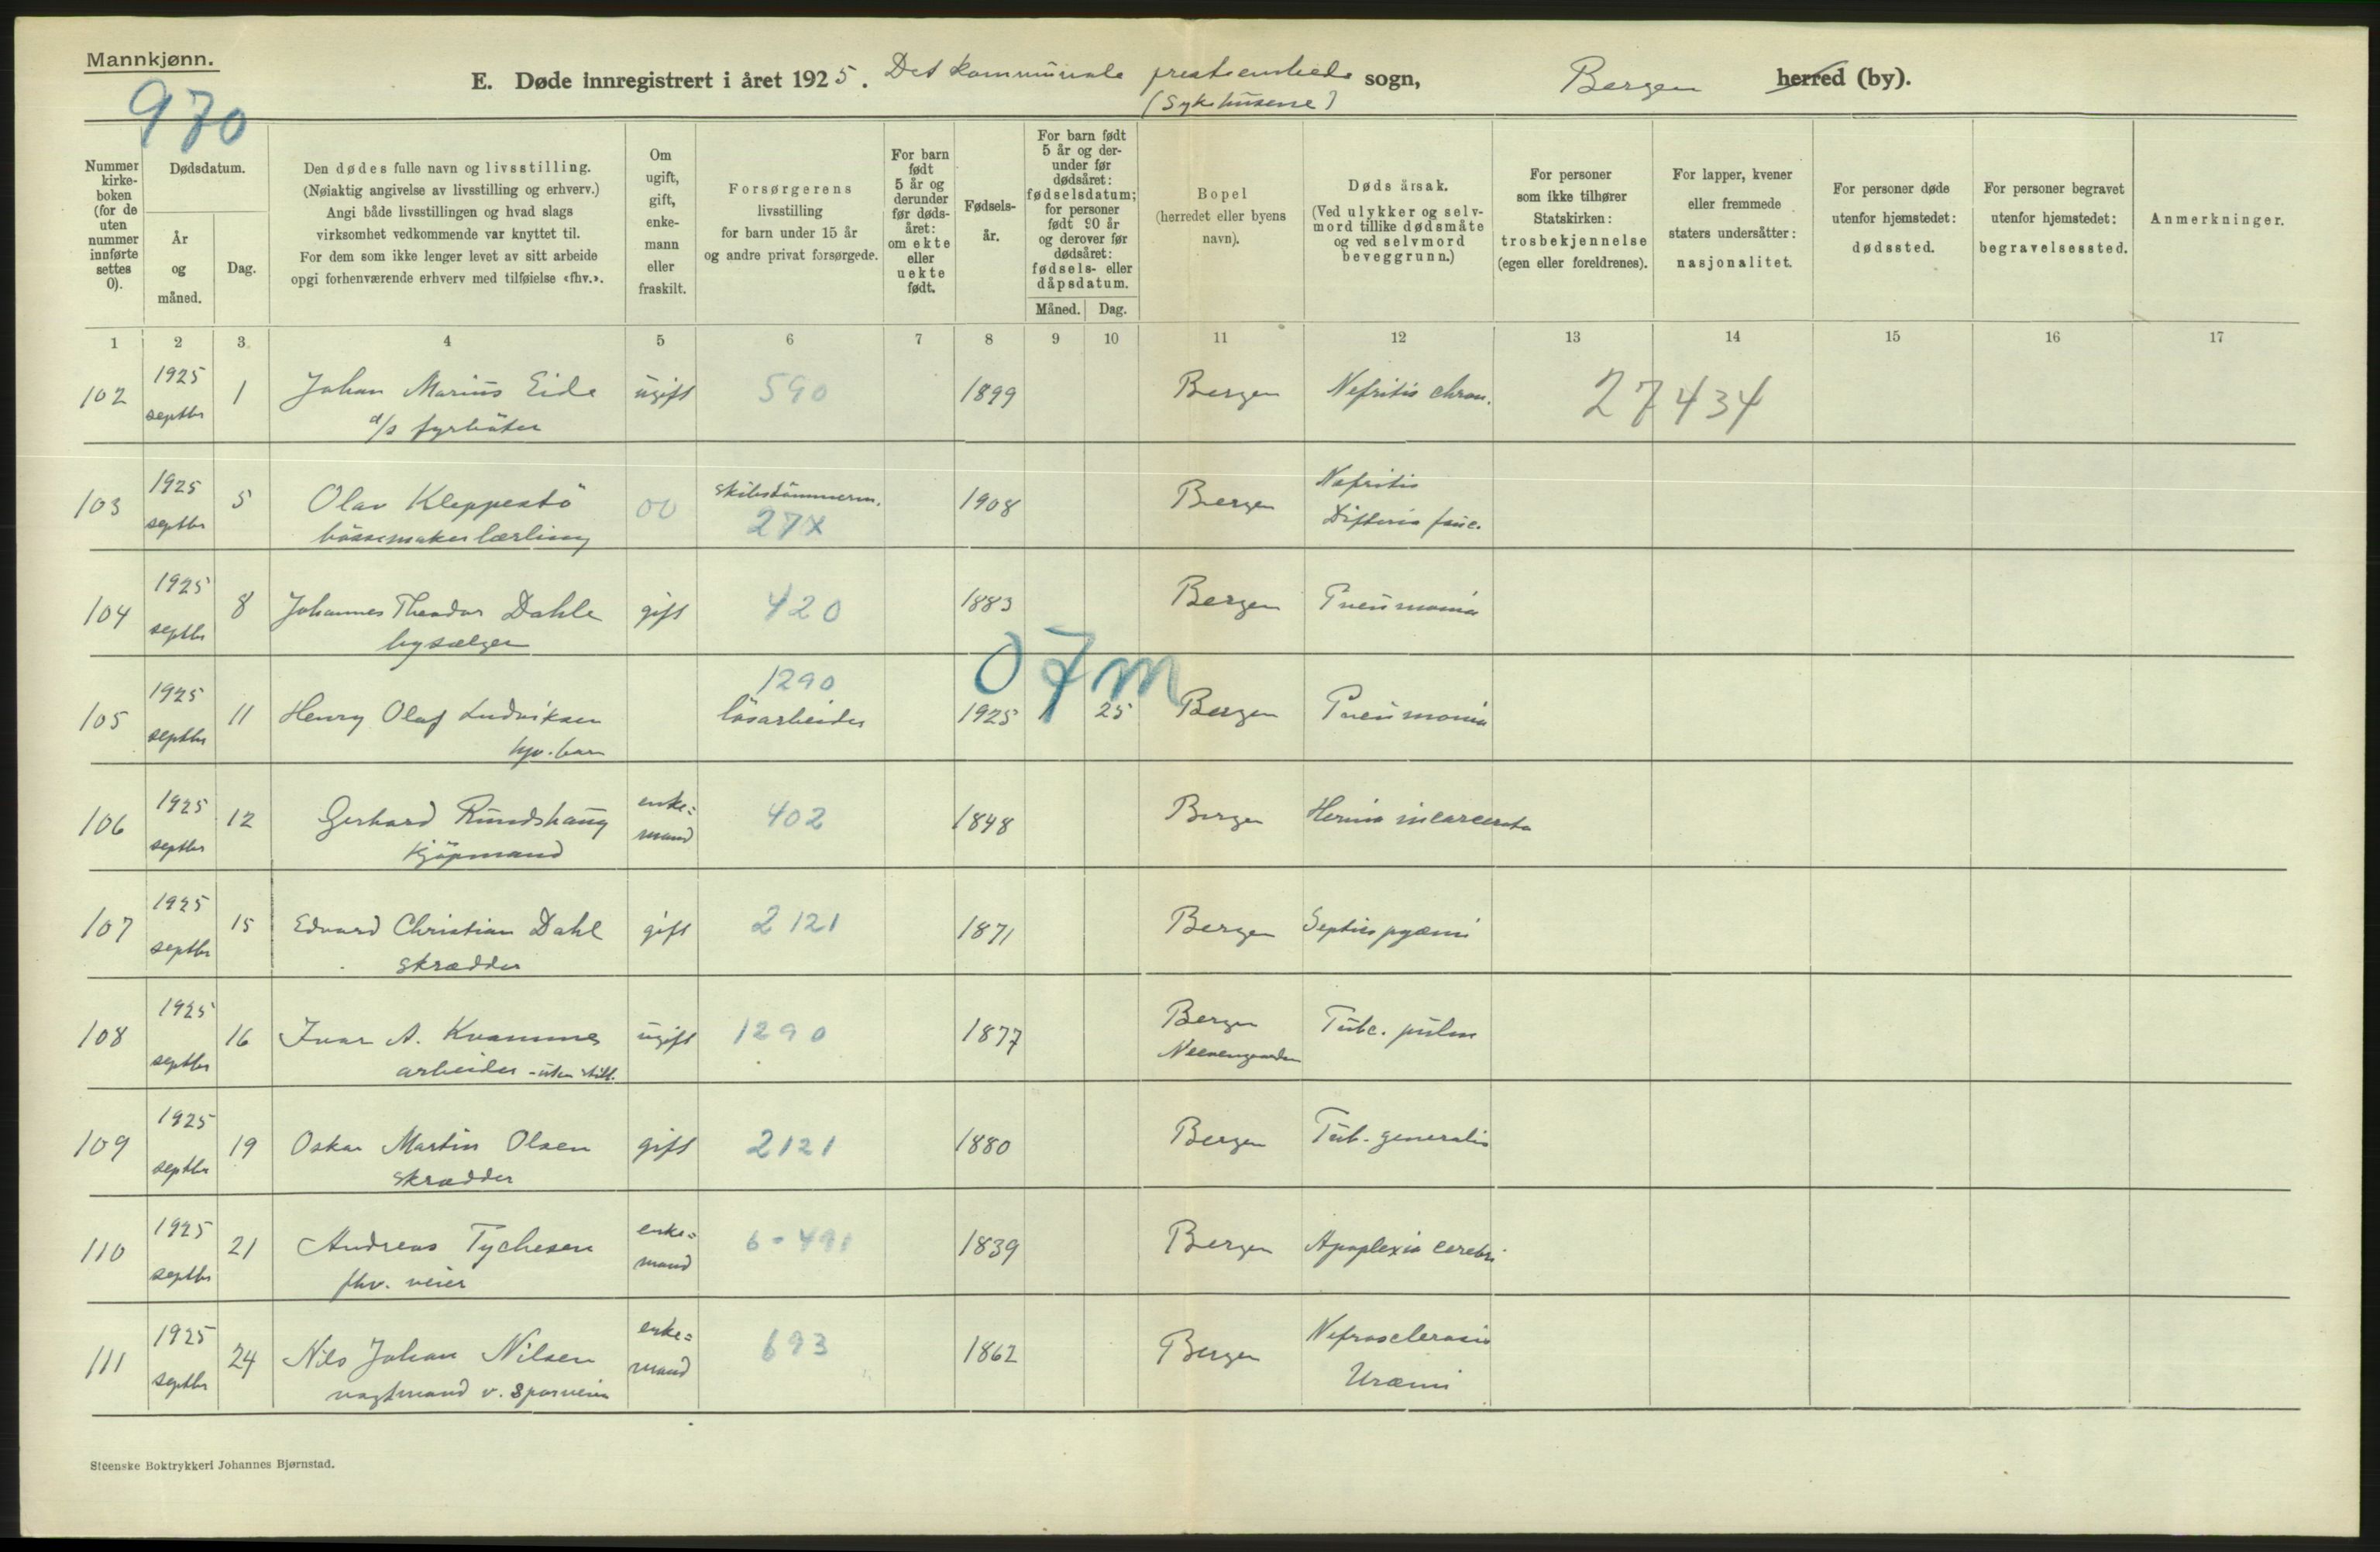 Mannkjønn.
970
E. Døde innregistrert i året 1925. Det kommunale presteembede sogn, Bergen herred (by).
(Sykehusene)
Nummer kirke-boken (for de uten nummer innførte settes 0).
Dødsdatum.
År og måned.
Dag.
Den dødes fulle navn og livsstilling.
(Nøiaktig angivelse av livsstilling og erhverv.)
Angi både livsstillingen og hvad slags
virksomhet vedkommende var knyttet til.
For dem som ikke lenger levet av sitt arbeide
opgi forhenværende erhverv med tilføielse «fhv.».
Om ugift, gift, enke-mann eller fraskilt.
Forsørgerens
livsstilling
for barn under 15 år
og andre privat forsørgede.
For barn født 5 år og derunder før døds-året: om ekte eller uekte født.
Fødsels-år.
For barn født 5 år og der-under før dødsåret: fødselsdatum; for personer født 90 år og derover før dødsåret: fødsels- eller dåpsdatum.
Måned. Dag.
Bopel
(herredet eller byens
navn).
Døds årsak.
(Ved ulykker og selv-
mord tillike dødsmåte
og ved selvmord
beveggrunn.)
For personer
som ikke tilhører
Statskirken:
trosbekjennelse
(egen eller foreldrenes).
For lapper, kvener
eller fremmede
staters undersåtter:
nasjonalitet.
For personer døde
utenfor hjemstedet:
dødssted.
For personer begravet
utenfor hjemstedet:
begravelsessted.
Anmerkninger.
1 2 3 4 5 6 7 8 9 10 11 12 13 14 15 16 17
102 1925 septbr 1 Johan Marius Eide ugift 590 1899 Bergen Nefritis chron. 27434
d/s fyrbøter
103 1925 septbr 5 Olav Kleppestö 00 skibstömmerm. 27X 1908 Bergen Nefritis
bössemaker lærling Difteria fauc.
104 1925 septbr 8 Johannes Theodor Dahle gift 420 1883 Bergen Pneumonia
bysælger
07m
105 1925 septbr 11 Henry Olaf Ludviksen 1290 lösarbeider 1925 25 Bergen Pneumonia
barn
106 1925 septbr 12 Gerhard Rundshaug enke=mand 402 1848 Bergen Hernia incarcerata
Kjöpmand
107 1925 septbr 15 Edvard Christian Dahl gift 2121 1871 Bergen Septico pyæmi
skrædder
108 1925 septbr 16 Ivar A. Kvamme ugift 1290 1877 Bergen Tubc. pulm
arbeider - uten still. Neevengaarden
109 1925 septbr 19 Oskar Martin Olsen gift 2121 1880 Bergen Tub. generalis
skrædder
110 1925 septbr 21 Andreas Tychesen enke=mand 1839 Bergen Apoplexia cerebri
fhv. veier
111 1925 septbr 24 Nils Johan Nilsen enke=mand 693 1862 Bergen Nefrosclerosis
vagtmand v. Sporveien Uræmi
Steenske Boktrykkeri Johannes Bjørnstad.